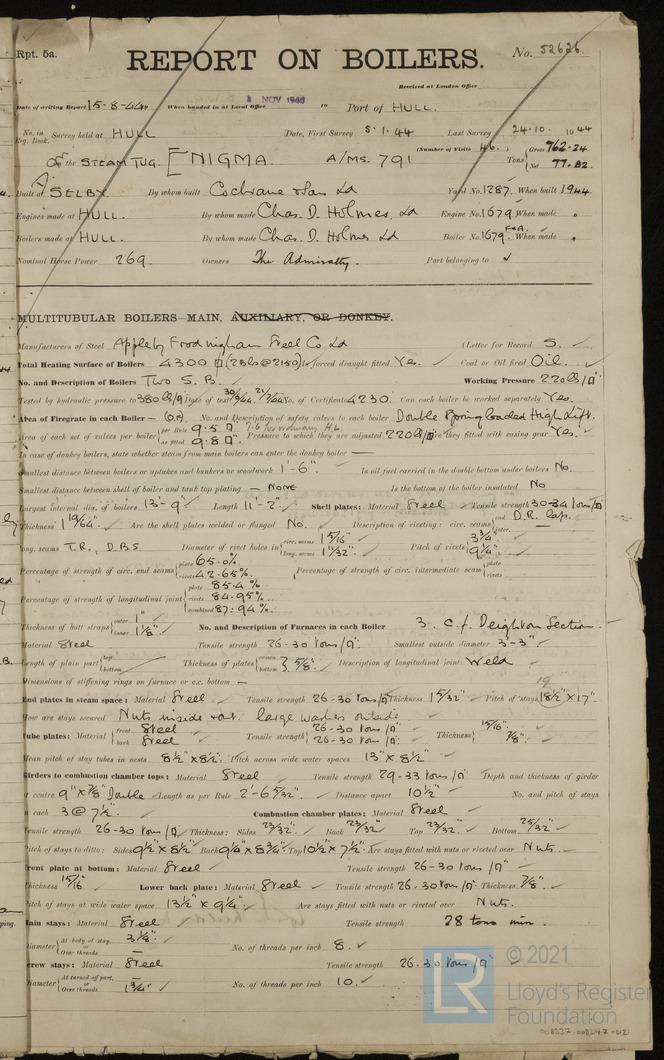 Rpt. 5a.
REPORT ON BOILERS.
No. 52626
Received at London Office
Date of writing Report 15-8-44 When handed in at Local Office 3 NOV 1944 10 Port of HULL.
No. in Reg. Book. Survey held at HULL Date, First Survey 5.1.44 Last Survey 24.10. 1944
(Number of Visits 46.)
on the STEAM TUG. ENIGMA. A/MS. 791 Tons Gross 762.24 Net 77.82
Built at SELBY. By whom built Cochrane & Sons Ld Yard No. 1287. When built 1944
Engines made at HULL. By whom made Chas. D. Holmes, Ld Engine No. 1679 When made "
Boilers made at HULL. By whom made Chas. D. Holmes Ld Boiler No. 1679. When made "
Nominal Horse Power 269. Owners The Admiralty. Port belonging to ✓
MULTITUBULAR BOILERS MAIN, AUXILIARY, OR DONKEY.
Manufacturers of Steel Appleby Frodingham Steel Co. Ld (Letter for Record S.
Total Heating Surface of Boilers 4300 □' (2 Bls @ 2150) Is forced draught fitted Yes. Coal or Oil fired Oil.
No. and Description of Boilers Two S.B. Working Pressure 220 lb/□"
Tested by hydraulic pressure to 380 lb/□" Date of test No. of Certificate 4230. Can each boiler be worked separately Yes.
Area of Firegrate in each Boiler No. and Description of safety valves to each boiler Double Spring loaded High Lift.
Area of each set of valves per boiler per Rule 9.5 □" 7.6 for ordinary H.L. as fitted 9.8 □" Pressure to which they are adjusted 220 lb/□" Are they fitted with easing gear Yes.
In case of donkey boilers, state whether steam from main boilers can enter the donkey boiler —
Smallest distance between boilers or uptakes and bunkers or woodwork 1'-6". Is oil fuel carried in the double bottom under boilers No.
Smallest distance between shell of boiler and tank top plating — NONE Is the bottom of the boiler insulated No
Largest internal dia. of boilers 13'-9" Length 11'-2" Shell plates: Material Steel Tensile strength 30-34 tons/□"
Thickness 1 19/64" Are the shell plates welded or flanged No. Description of riveting: circ. seams end D.R. lap. inter.
long. seams T.R., D.B.S. Diameter of rivet holes in circ. seams 1 5/16" long. seams 1 11/32" Pitch of rivets 3 3/4" 9 1/4"
Percentage of strength of circ. end seams plate 65.0% rivets 42.65% Percentage of strength of circ. intermediate seam plate rivets
Percentage of strength of longitudinal joint plate 85.4% rivets 84.95% combined 87.94%
Thickness of butt straps outer 1" inner 1 1/8" No. and Description of Furnaces in each Boiler 3. C.f. Deighton Section.
Material Steel Tensile strength 26-30 tons/□" Smallest outside diameter 3'-3"
Length of plain part top bottom Thickness of plates crown bottom 5/8" Description of longitudinal joint Weld
Dimensions of stiffening rings on furnace or c.c. bottom —
End plates in steam space: Material Steel Tensile strength 26-30 tons/□" Thickness 1 5/32" Pitch of stays 18 1/2" × 17" 19
How are stays secured Nuts inside & out. large washers outside
Tube plates: Material front Steel back Steel Tensile strength 26-30 tons/□" 26-30 tons/□" Thickness 15/16" 7/8"
Mean pitch of stay tubes in nests 8 1/2" × 8 1/2" Pitch across wide water spaces 13" × 8 1/2"
Girders to combustion chamber tops: Material Steel Tensile strength 29-33 tons/□" Depth and thickness of girder
at centre 9" × 7/8" Double Length as per Rule 2'-6 5/32" Distance apart 10 1/2" No. and pitch of stays
in each 3 @ 7 1/2" Combustion chamber plates: Material Steel
Tensile strength 26-30 tons/□" Thickness: Sides 23/32" Back 23/32" Top 23/32" Bottom 25/32"
Pitch of stays to ditto: Sides 9 1/2" × 8 1/2" Back 9 1/4" × 8 3/4" Top 10 1/2" × 7 1/2" Are stays fitted with nuts or riveted over Nuts.
Front plate at bottom: Material Steel Tensile strength 26-30 tons/□"
Thickness 15/16" Lower back plate: Material Steel Tensile strength 26-30 tons/□" Thickness 7/8"
Pitch of stays at wide water space 13 1/2" × 9 1/4" Are stays fitted with nuts or riveted over Nuts.
Main stays: Material Steel Tensile strength 28 tons min.
Diameter At body of stay, or Over threads 3 1/8" No. of threads per inch 8.
Screw stays: Material Steel Tensile strength 26-30 tons/□"
Diameter At turned off part, or Over threads 1 3/4" No. of threads per inch 10.
LR
© 2021
Lloyd's Register
Foundation
008237-008247-0121